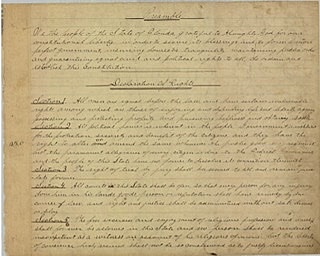 Preamble
We the people of the State of Florida grateful to Almighty God for our
constitutional liberty in order to secure its blessings and to form a more
perfect government insuring domestic tranquility maintaining public order
and guaranteeing equal civil and political rights to all, do ordain and
establish this Constitution
Declaration of Rights
Section 1 All men are equal before the law and have certain inalienable
rights among which are those of enjoying and defending life and liberty acquiring
possessing and protecting property and pursuing happiness and obtaining safety
Section 2 All political power is inherent in the people Government is instituted
for the protection security and benefit of the citizens and they have the
right to alter or amend the same whenever the public good may require
it but the paramount allegiance of every citizen is due to the Federal Government
and the people of this State have no power to dissolve its connection therewith
Section 3 The right of trial by jury shall be secured to all and remain
Section 4 All courts in this State shall be open so that every person for any injury
done him in his lands goods person or reputation shall have remedy by due
course of law and right and justice shall be administered without sale denial
or delay
Section 5 The free exercise and enjoyment of religious profession and worship
shall forever be allowed in this State and no person shall be rendered
incompetent as a witness on account of his religious opinions but the liberty
of conscience hereby secured shall not be so construed as to justify licentiousness